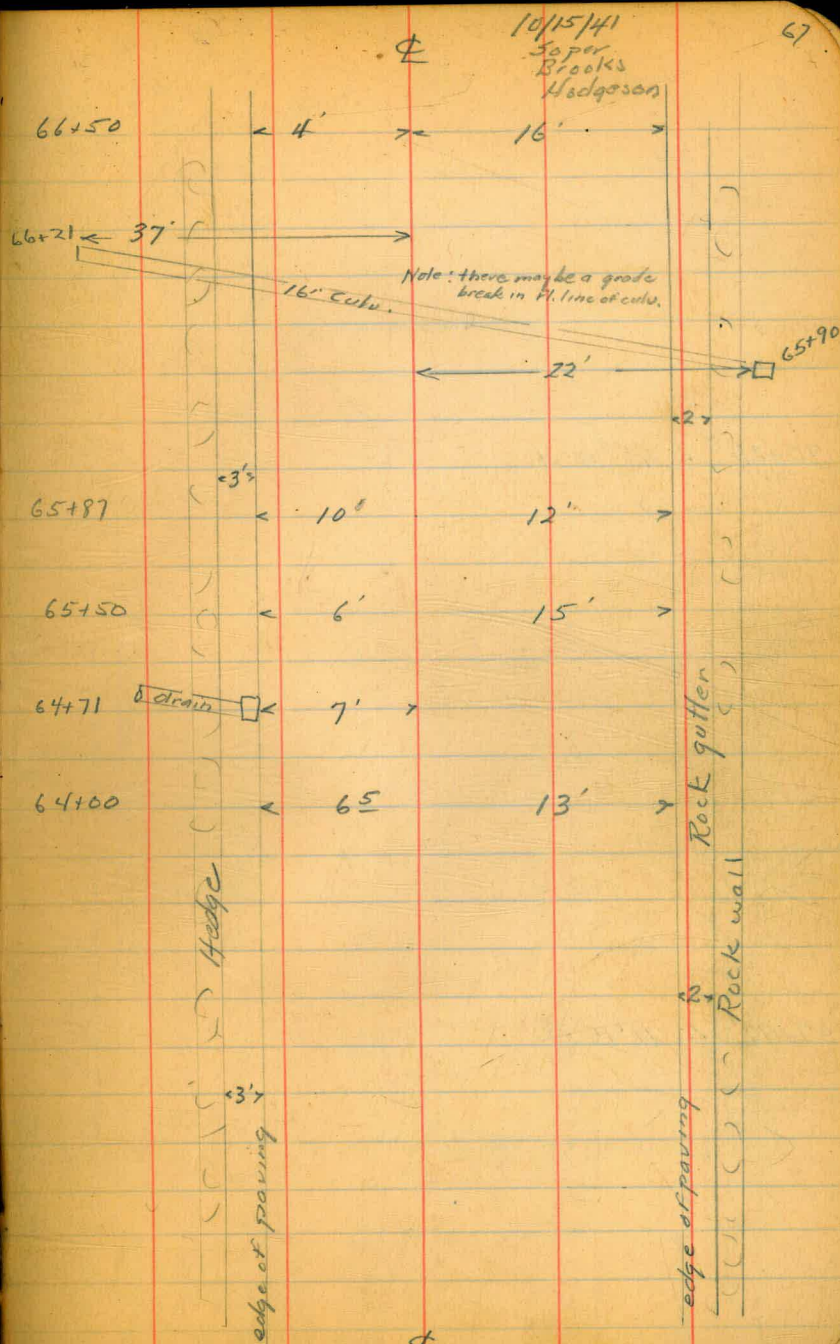 10/15/41
67
℄
Soper
Brooks
Hodgeson
66+50 4' 16'
66+21 37'
Note: there may be a grade
break in fl. line of culv.
16" Culv.
65+90
22'
2
3'
65+87 10' 12'
65+50 6' 15'
64+71 drain 7'
64+00 6 5 13'
Rock gutter
Hedge
Rock wall
2
3'
edge of paving
edge of paving
℄